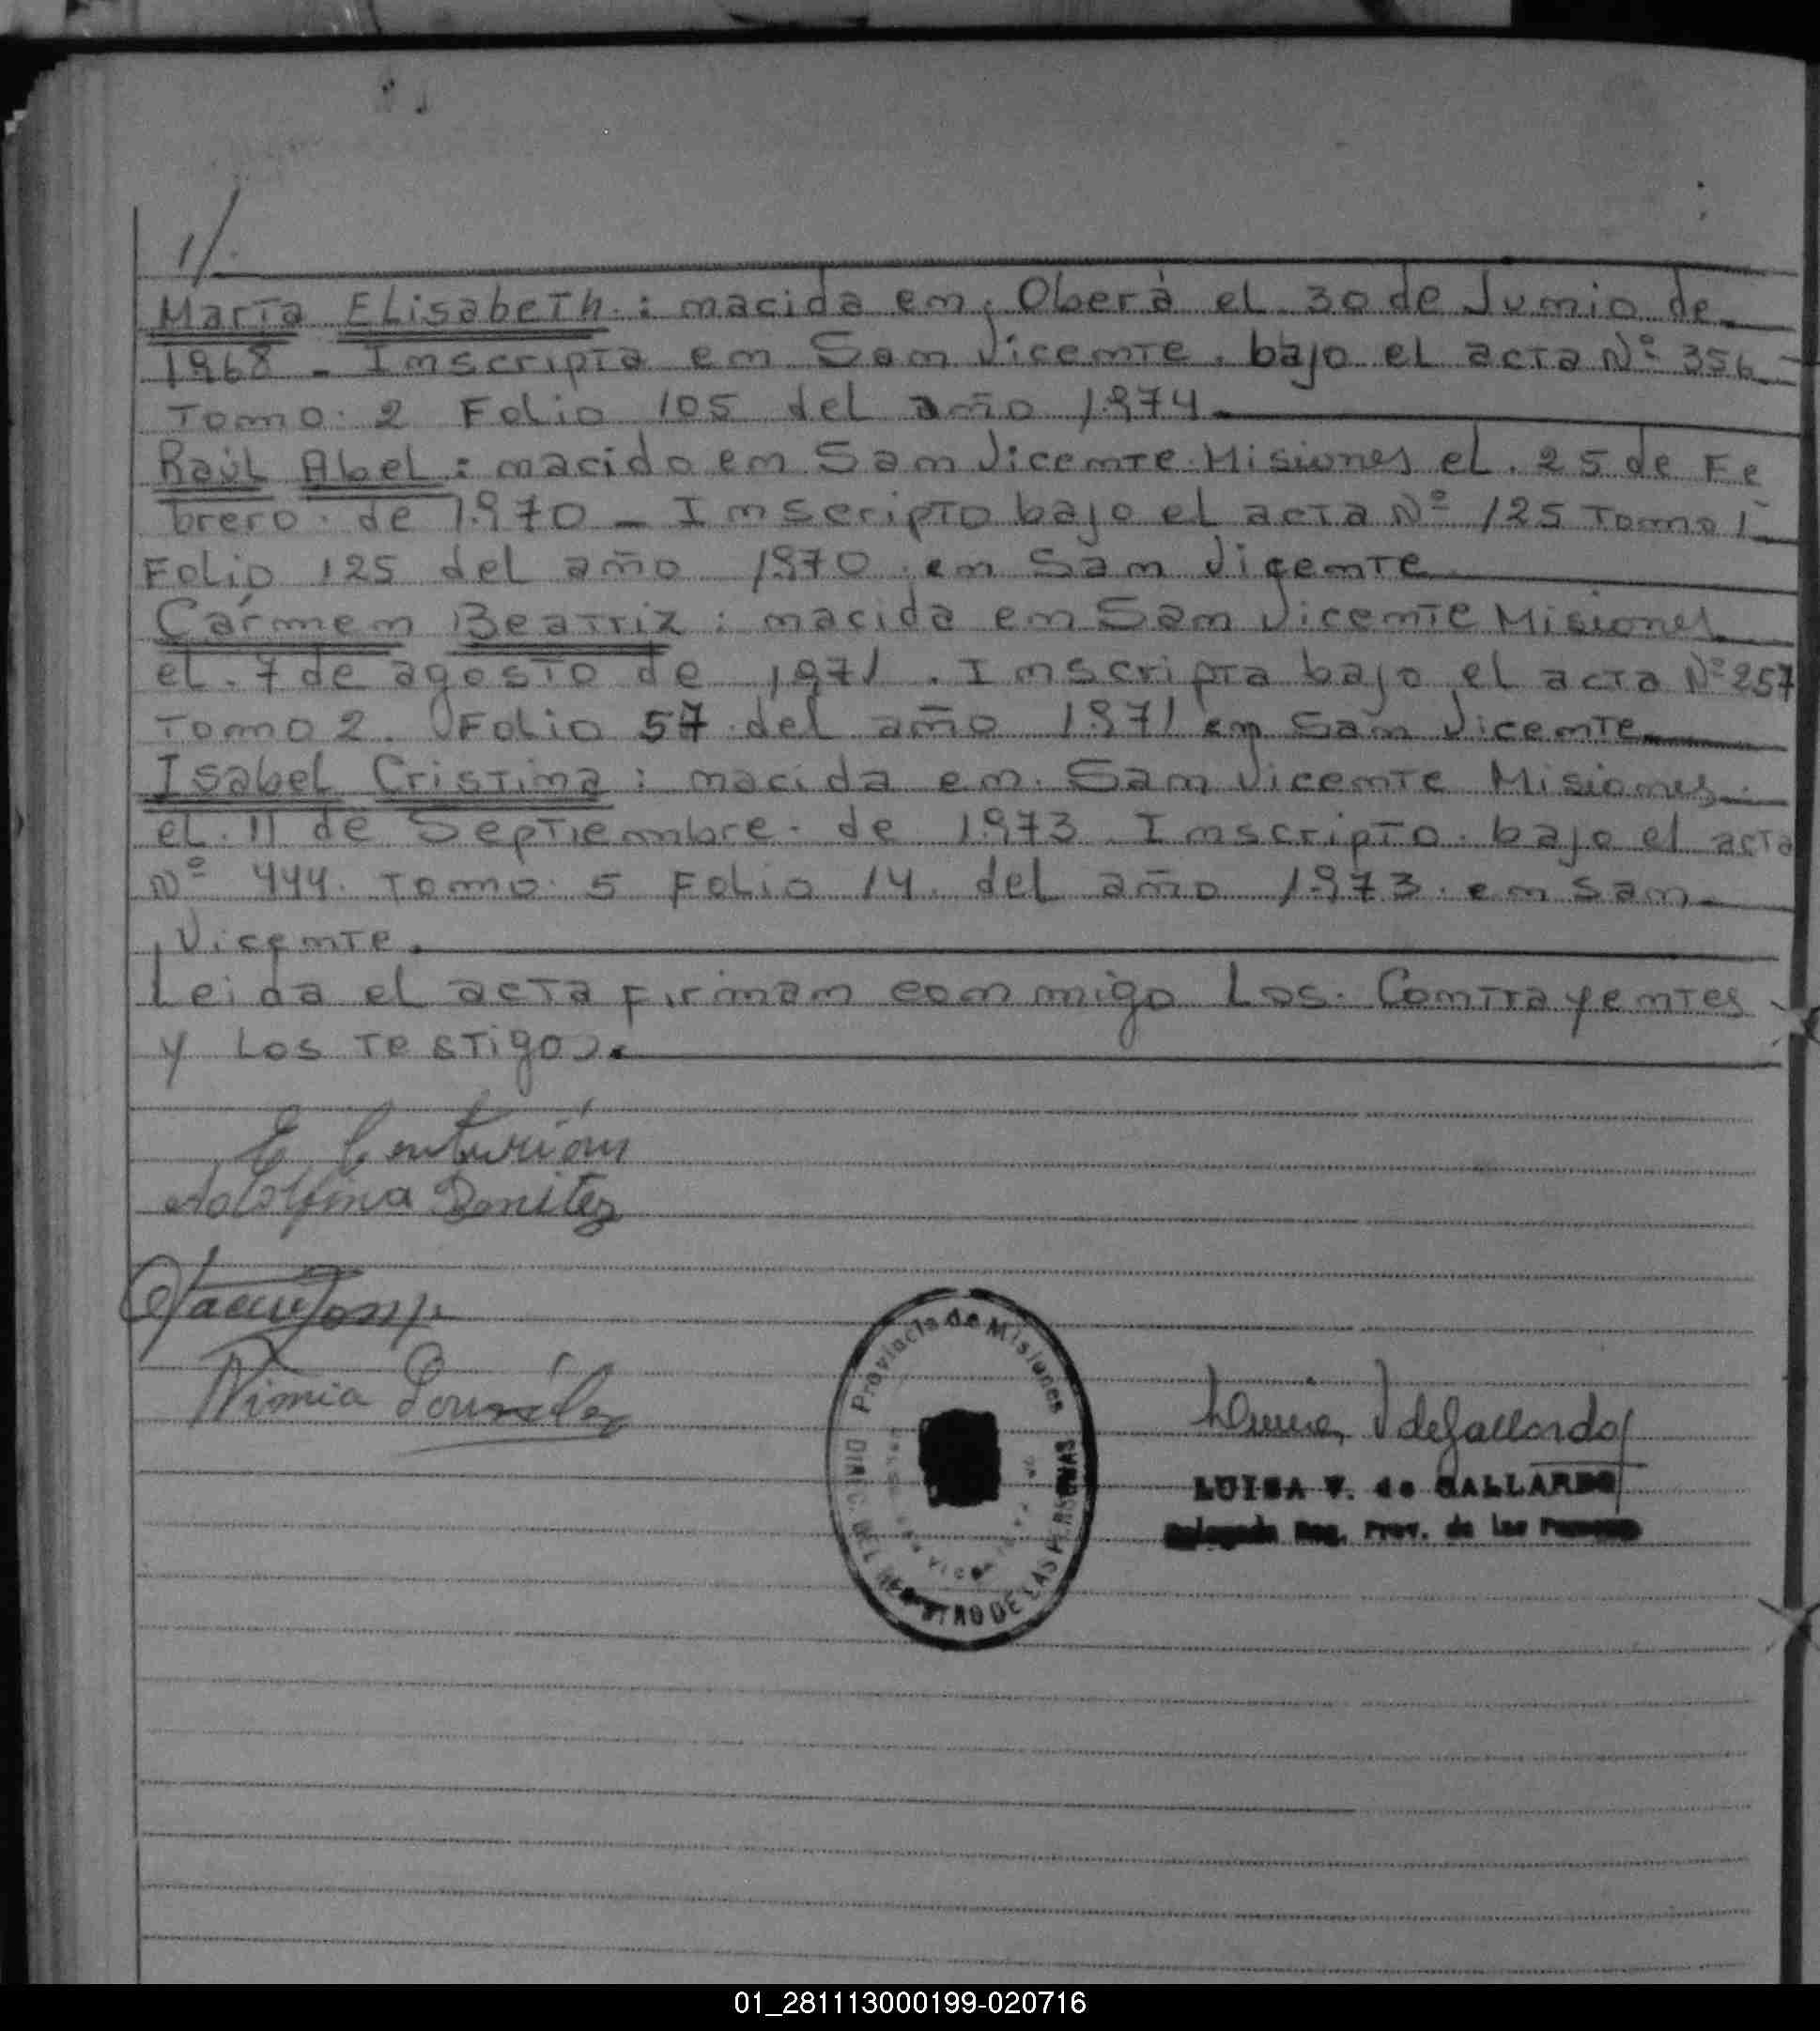 1/.
María Elisabeth: nacida en Oberá el 30 de Junio de
1968 - Inscripta en San Vicente. bajo el acta Nº 356
Tomo: 2 Folio 105 del año 1.974.
Raúl Abel: nacido en San Vicente Misiones el. 25 de Fe
brero. de 1.970 - Inscripto bajo el acta Nº 125 Tomo 1
Folio 125 del año 1970. en San Vicente
Cármen Beatriz: nacida en San Vicente Misiones
el. 7 de agosto de 1.971. Inscripta bajo el acta Nº 257
Tomo 2. Folio 57 del año 1.971 en San Vicente
Isabel Cristina: nacida en San Vicente Misiones
el. 11 de Septiembre. de 1.973. Inscripto. bajo el acta
Nº 444. Tomo. 5 Folio 14. del año 1.973. en San
Vicente.
Leida el acta Firman conmigo Los. Contrayentes
y Los Testigos.
E Centurión
Adolfina Benitez
Nimia González
Provincia de Misiones
DIREC. DEL REGISTRO DE LAS PERSONAS
Luisa V de Gallardo
LUISA V. de GALLARDO
Delegada Reg. Prov. de las Personas
01_281113000199-020716